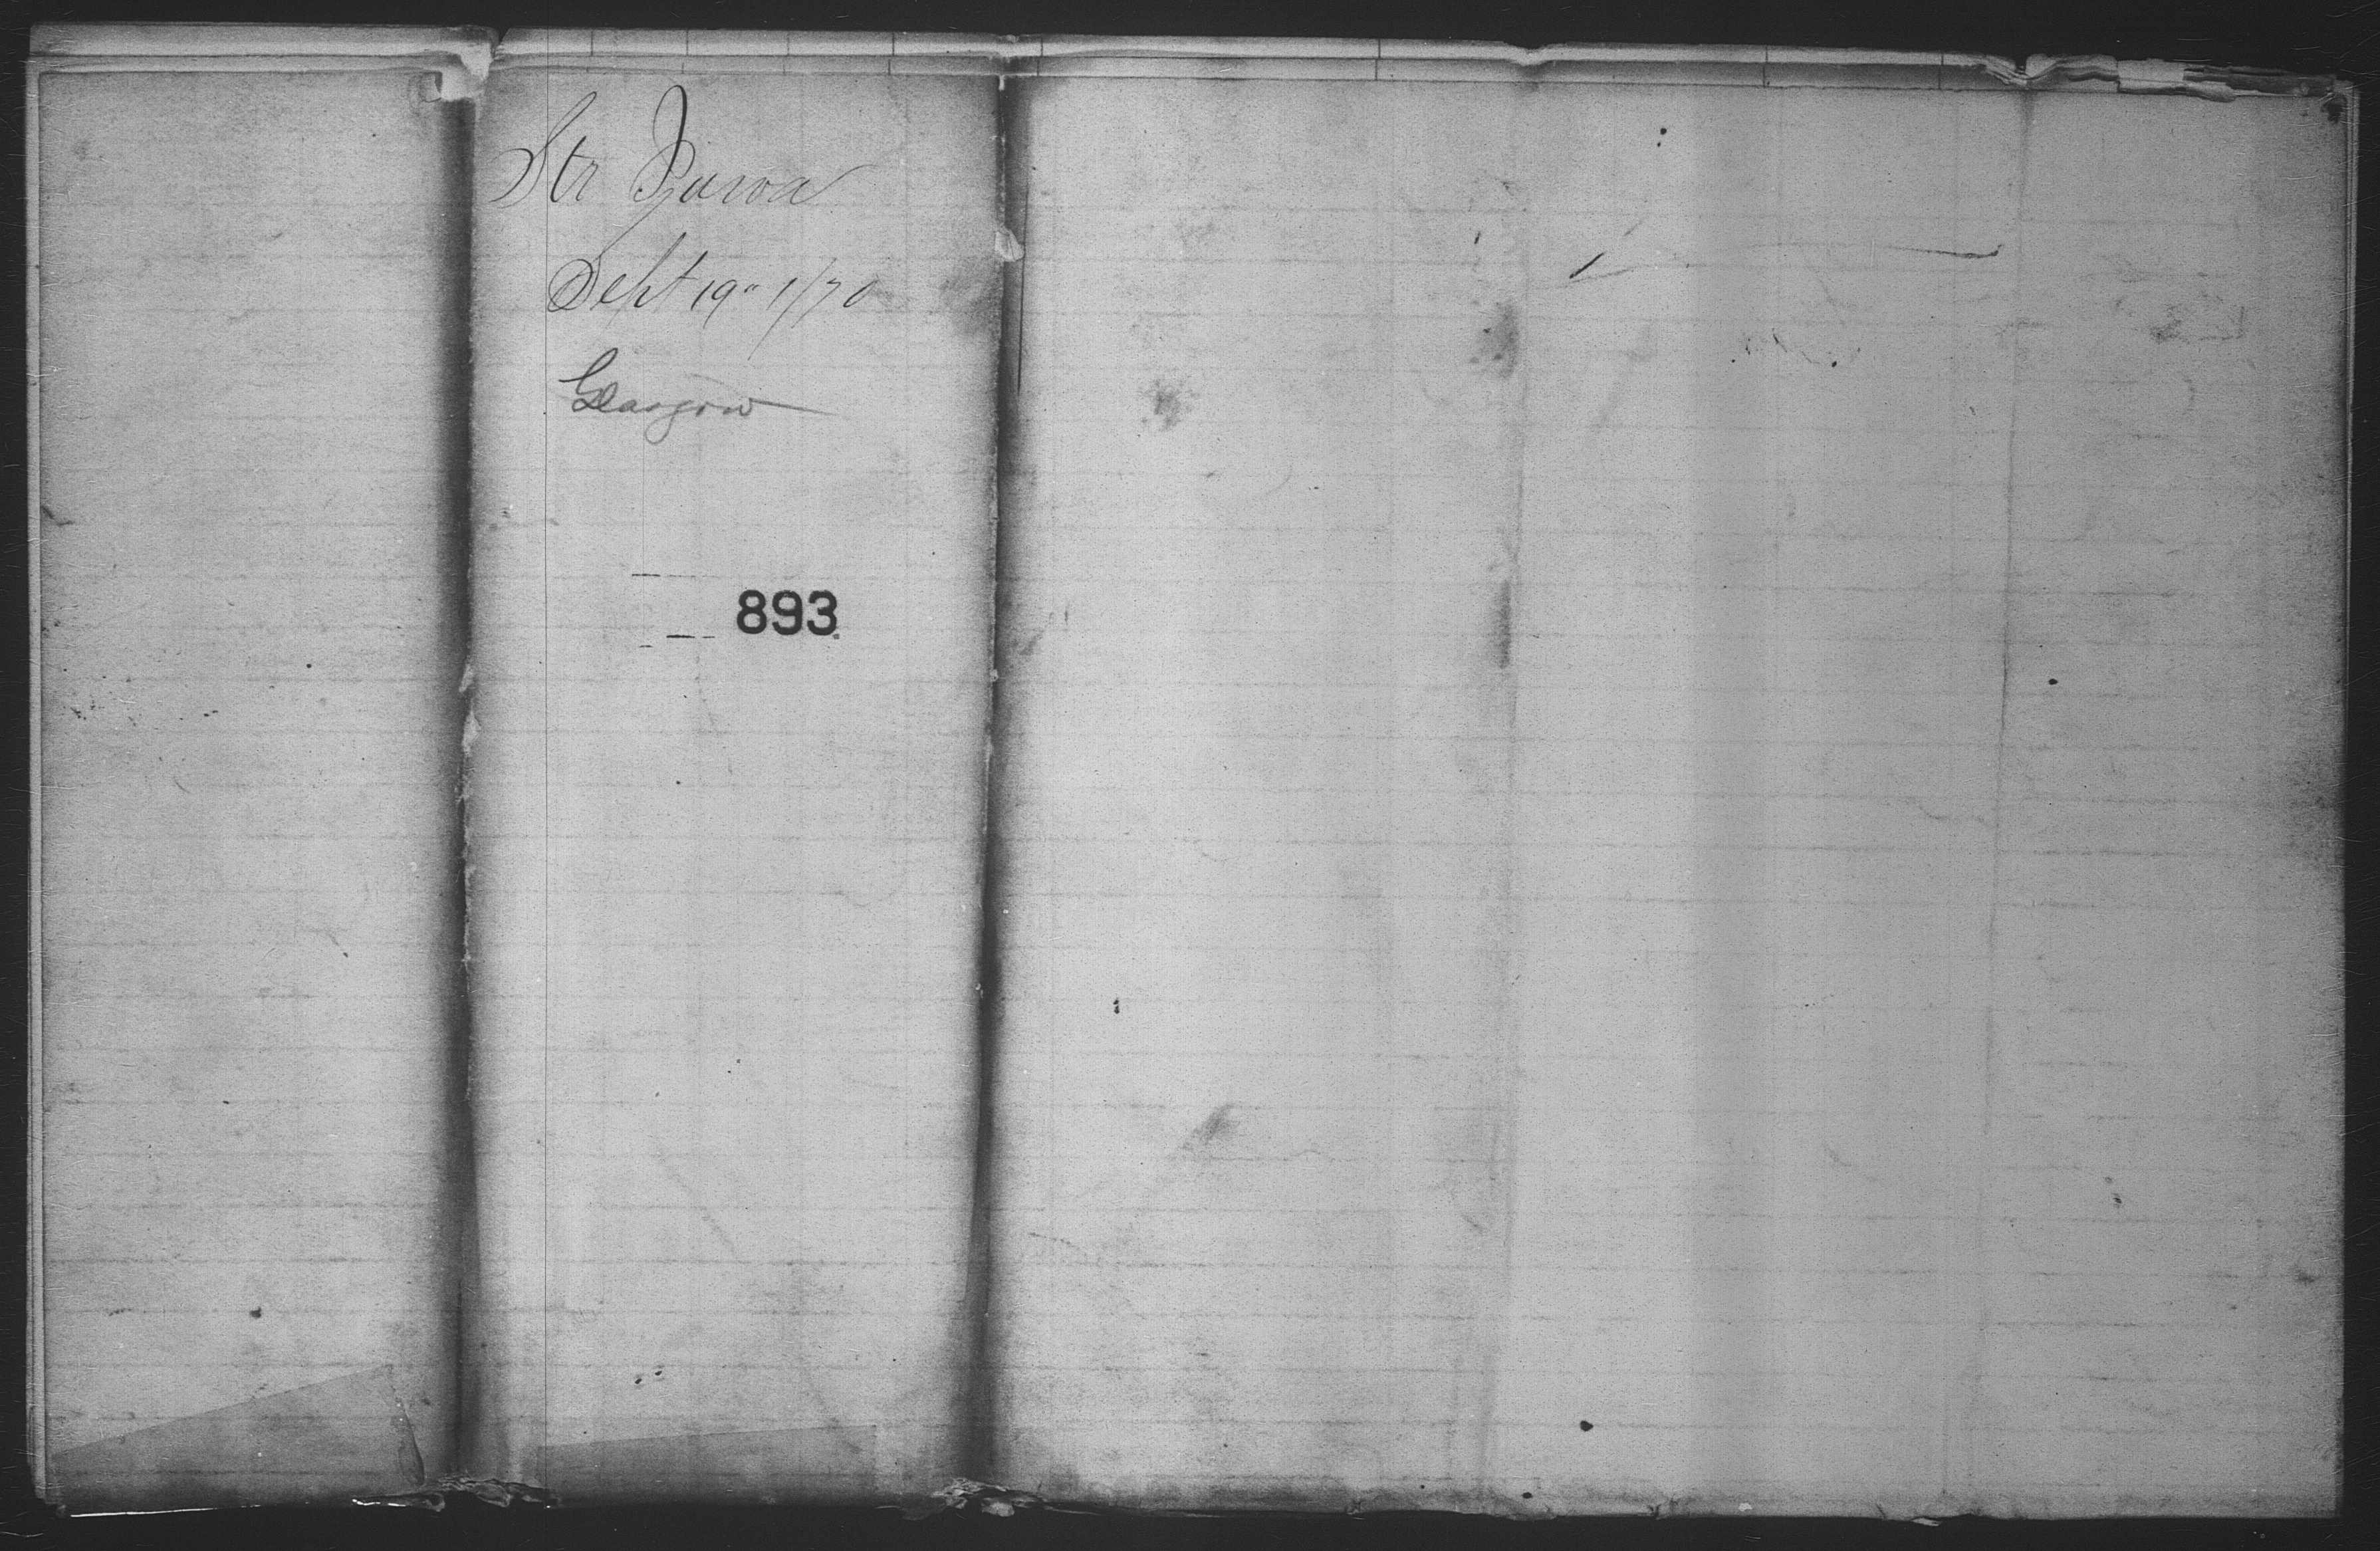 Str Iowa
Sept 19" 1/70
Glasgow
893